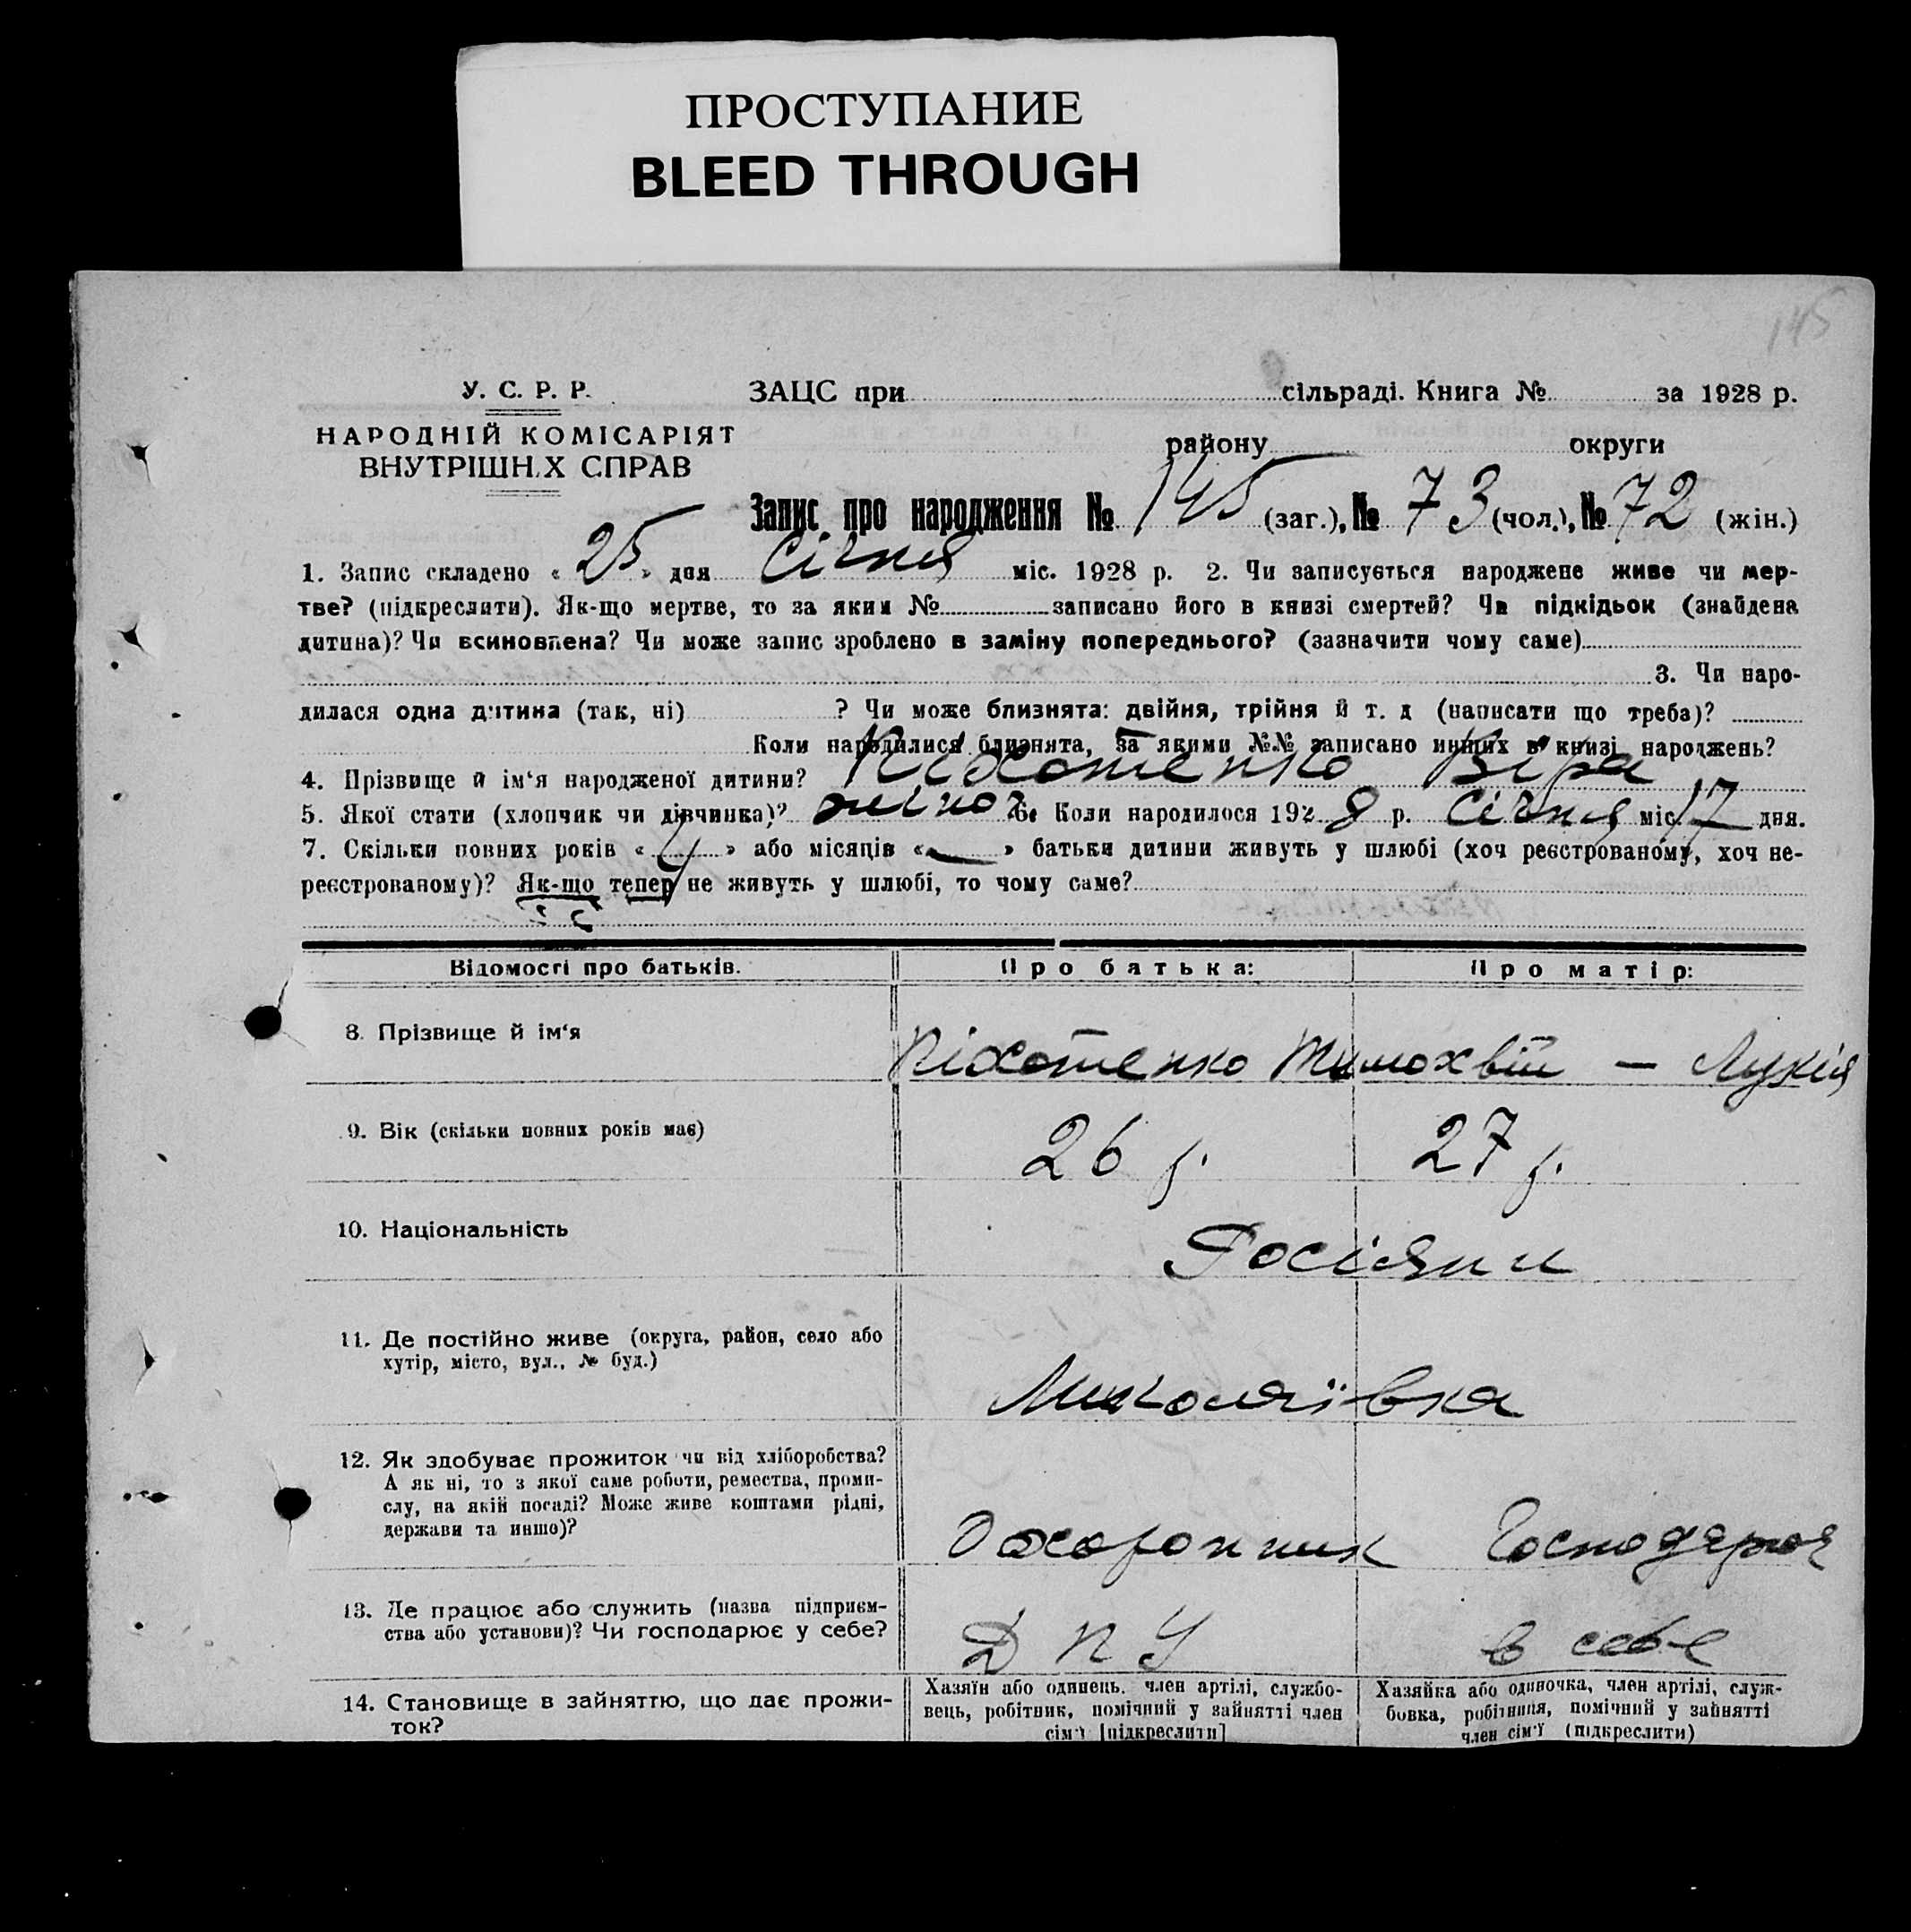 ПРОСТУПАНИЕ
BLEED THROUGH
145
У. С. Р. Р.
НАРОДНІЙ КОМІСАРІЯТ
ВНУТРІШН.Х СПРАВ
ЗАЦС при сільраді. Книга № за 1928 р.
району округи
Запис про народження № 145 (заг.), № 73 (чол.), № 72 (жін.)
1. Запис складено « 25 » дня Січня міс. 1928 р. 2. Чи записується народжене живе чи мер-
тве? (підкреслити). Як-що мертве, то за яким № записано його в книзі смертей? Чи підкідьок (знайдена
дитина)? Чи всиновлена? Чи може запис зроблено в заміну попереднього? (зазначити чому саме)
3. Чи наро-
дилася одна дитина (так, ні) ? Чи може близнята: двійня, трійня й т. д (написати що треба)?
Коли народилися близнята, за якими №№ записано инших в книзі народжень?
4. Прізвище й ім‘я народженої дитини? Піхотенко Віра
5. Якої стати (хлопчик чи дівчинка)? жіно 6. Коли народилося 1928 р. Січня міс. 17 дня.
7. Скільки повних років « 4 » або місяців « — » батьки дитини живуть у шлюбі (хоч реєстрованому, хоч не-
реєстрованому)? Як-що тепер не живуть у шлюбі, то чому саме?
Відомості про батьків. Про батька: Про матір:
8. Прізвище й ім‘я Піхотенко Тимохвій — Лукія
9. Вік (скільки повних років має) 26 р. 27 р.
10. Національність Росіяни
11. Де постійно живе (округа, район, село або
хутір, місто, вул., № буд.)
Миколаївка
12. Як здобуває прожиток чи від хліборобства?
А як ні, то з якої саме роботи, ремества, проми-
слу, на якій посаді? Може живе коштами рідні,
держави та инше)?
Охоронник Господарює
13. Де працює або служить (назва підприєм-
ства або установи)? Чи господарює у себе?
Д П У в себе
14. Становище в зайняттю, що дає прожи-
ток?
Хазяїн або одинець. член артілі, службо-
вець, робітник, помічний у зайнятті член
сім‘ї [підкреслити]
Хазяйка або одиночка, член артілі, служ-
бовка, робітниця, помічний у зайнятті
член сім‘ї (підкреслити)